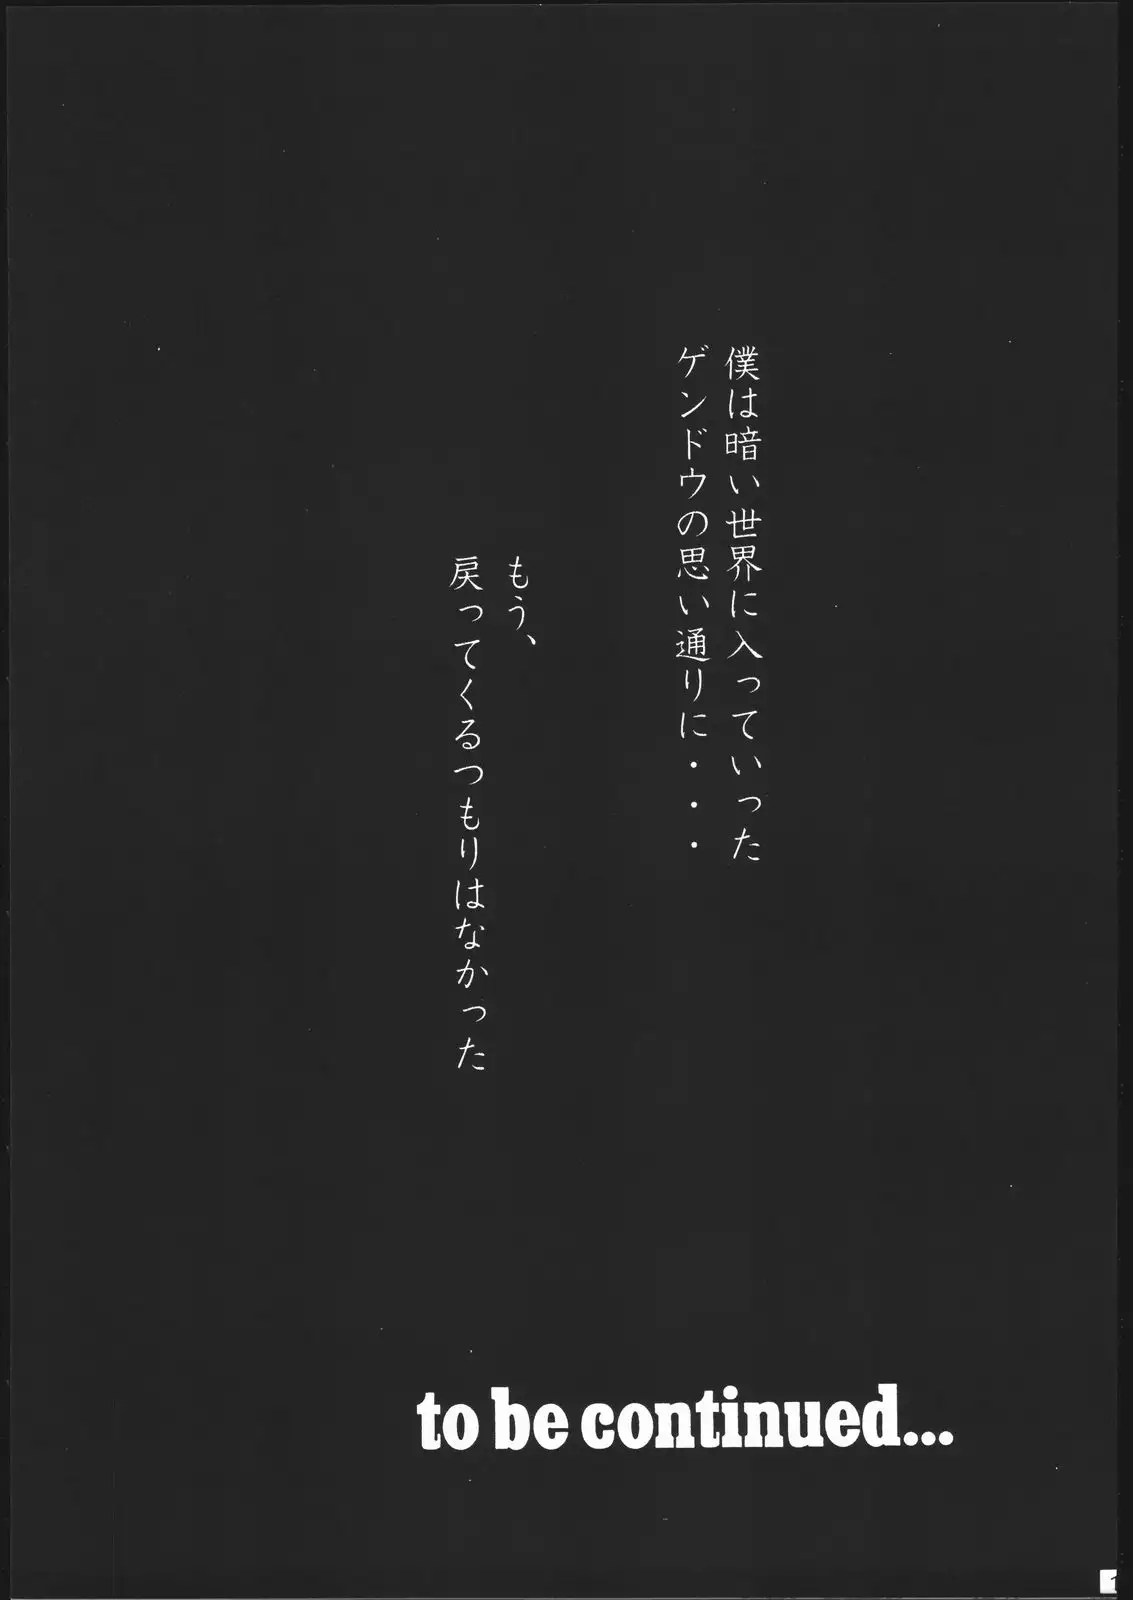 僕は暗い世界に入っていった
ゲンドウの思い通りに・・・
もう、
戻ってくるつもりはなかった
to be continued...